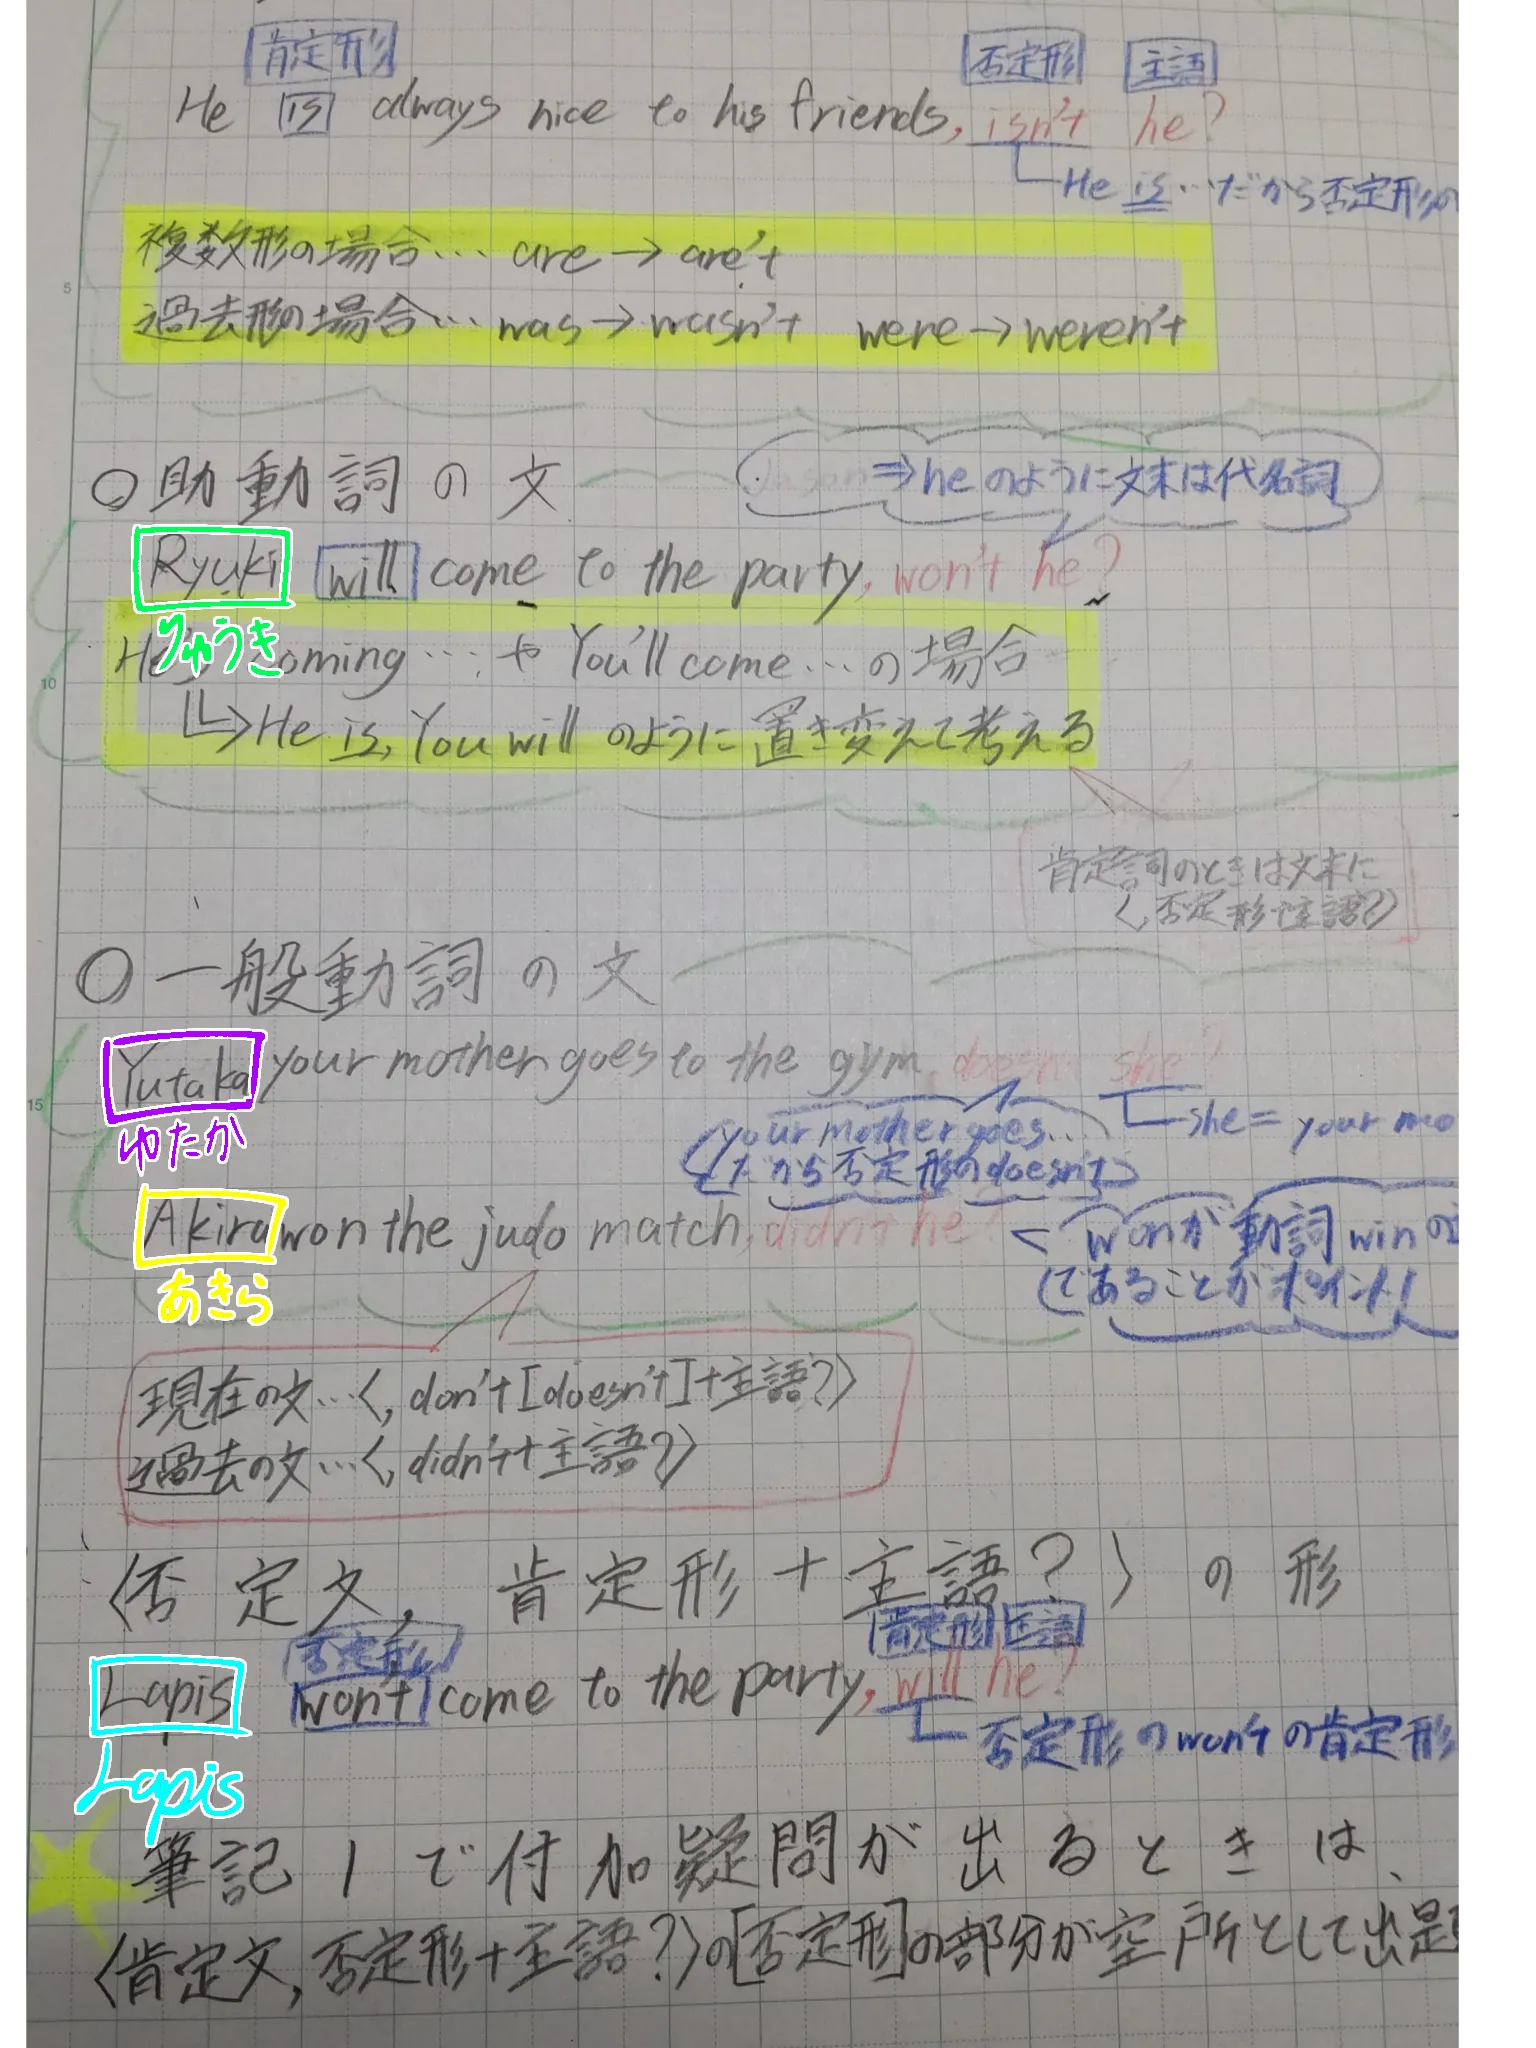 肯定形 否定形 主語
He is always nice to his friends, isn't he?
He is…だから否定形の
複数形の場合… are→are't
過去形の場合… was→wasn't were→weren't
○助動詞の文
⇒heのように文末は代名詞
Ryuki will come to the party, won't he?
りゅうき
He's coming…や You'll come…の場合
→He is, You will のように置き変えて考える
肯定詞のときは文末に
〈,否定形+主語?〉
○一般動詞の文
Yutaka your mother goes to the gym, doesn't she?
ゆたか
your mother goes…
だから否定形のdoesn't
she = your mo
Akira won the judo match, didn't he?
あきら
wonが動詞winの
であることがポイント!
現在の文…〈, don't [doesn't]+主語?〉
過去の文…〈, didn't+主語?〉
〈否定文, 肯定形+主語?〉の形
否定形 肯定形 主語
Lapis won't come to the party, will he?
Lapis
否定形のwon'tの肯定形
筆記1で付加疑問が出るときは、
〈肯定文,否定形+主語?〉の[否定形]の部分が空所として出題